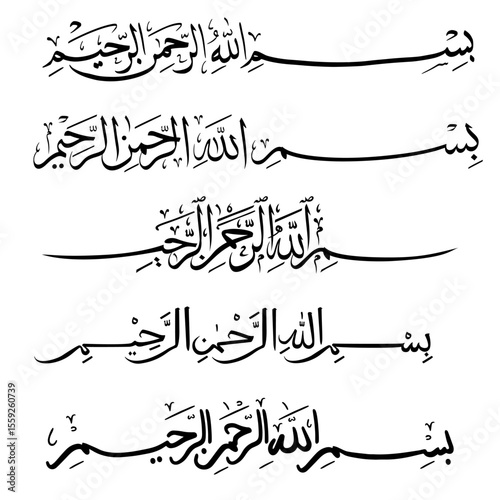 بِسْمِ اللهِ الرَّحْمٰنِ الرَّحِيْمِ
بِسْمِ اللهِ الرَّحْمٰنِ الرَّحِيْمِ
بِسْمِ اللهِ الرَّحْمٰنِ الرَّحِيْمِ
بِسْمِ اللهِ الرَّحْمٰنِ الرَّحِيْمِ
بِسْمِ اللهِ الرَّحْمٰنِ الرَّحِيْمِ
Adobe Stock | #1559260739